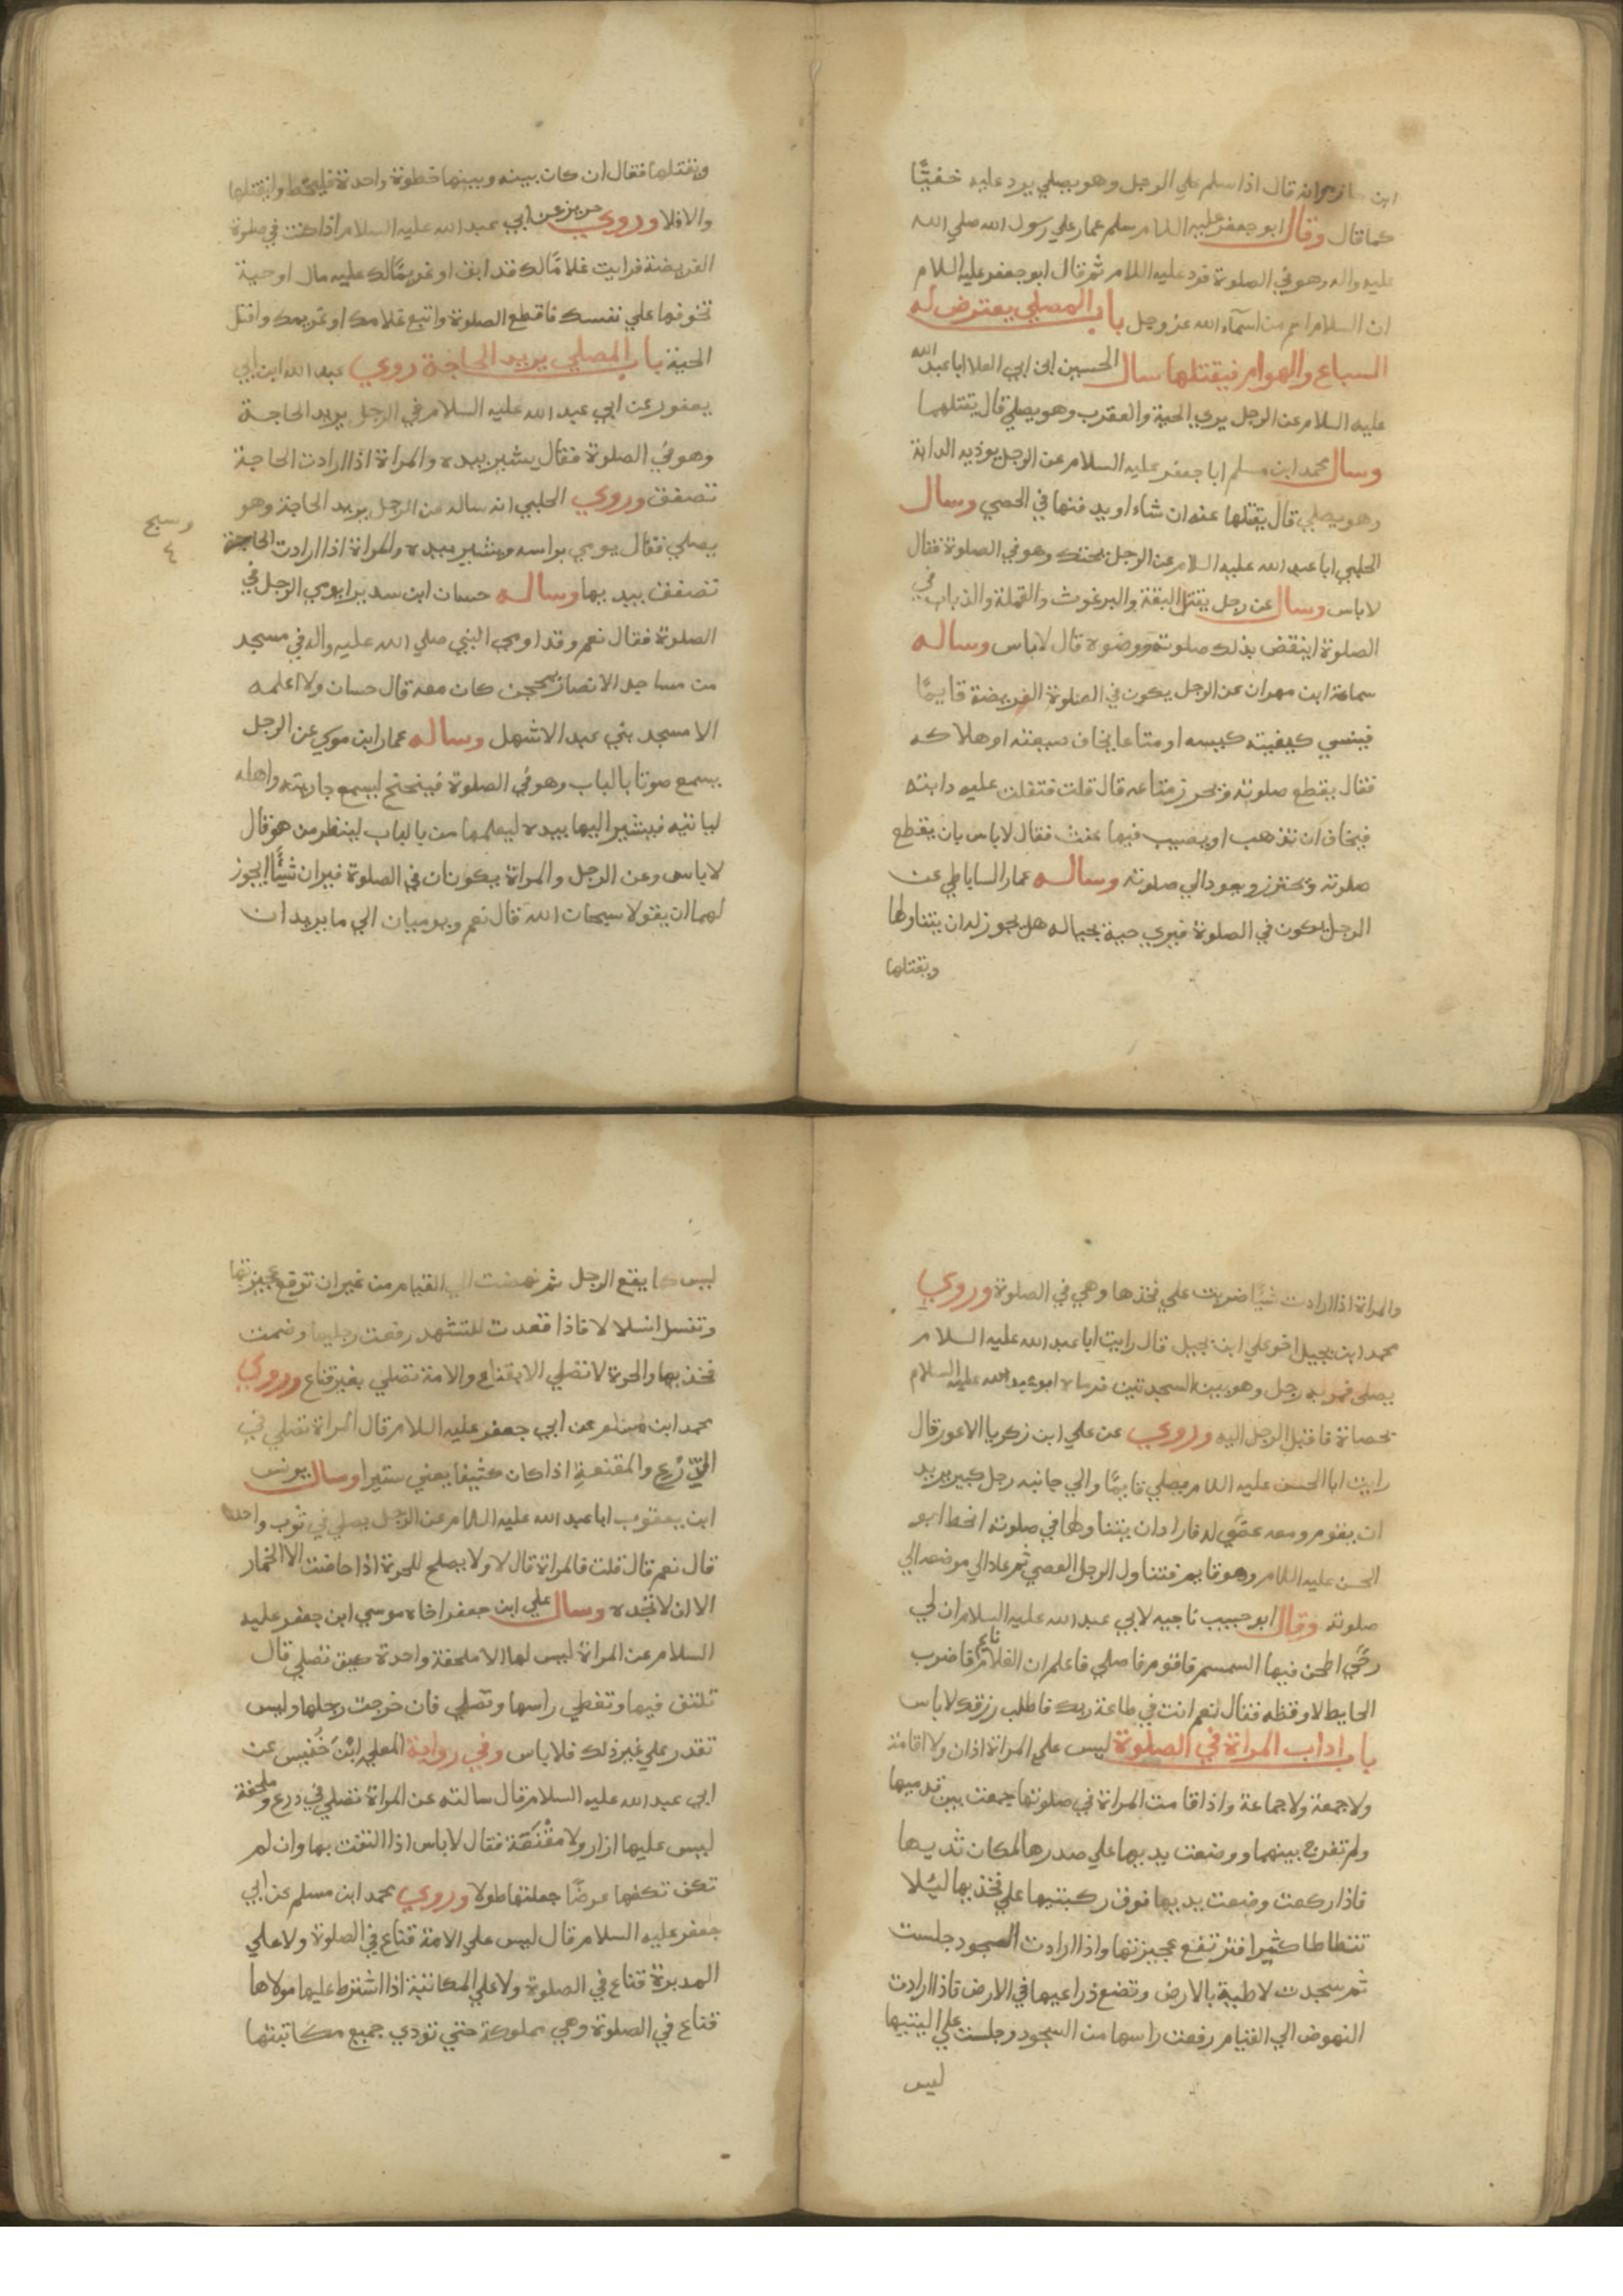 ابن حازم انه قال اذا سلم علي الرجل وهو يصلي يرد عليه خفيّا
كما قال وقال ابو جعفر عليه السلام سلم عمار علي رسول الله صلي الله
عليه واله وهو في الصلوة فرد عليه السلام ثم قال ابو جعفر عليه السلام
ان السلام اسم من اسمآء الله عز وجل باب المصلي يعترض له
السباع والهوام فيقتلها سال الحسين ابن ابي العلا ابا عبد الله
عليه السلام عن الرجل يري الحية والعقرب وهو يصلي قال يقتلهما
وسال محمد ابن مسلم ابا جعفر عليه السلام عن الرجل يوذيه الدابة
وهو يصلي قال يقتلها عنه ان شاء او يدفنها في الحصي وسال
الحلبي ابا عبد الله عليه السلام عن الرجل يحتك وهو في الصلوة فقال
لا باس وسال عن رجل يقتل البقة والبرغوث والقملة والذباب في
الصلوة اينقض بذلك صلوته ووضوه قال لا باس وساله
سماعة ابن مهران عن الرجل يكون في الصلوة الفريضة قايمًا
فينسي كيسه او متاعا يخاف ضيعته او هلاكه
فقال يقطع صلوته ويحرز متاعه قال قلت فتفلت عليه دابته
فيخاف ان تذهب او يصيب فيها عنت فقال لا باس بان يقطع
صلوته ويحترز ويعود الي صلوته وساله عمار الساباطي عن
الرجل يكون في الصلوة فيري حية بحياله هل يجوز له ان يتناولها
ويقتلها
ويقتلها فقال ان كان بينه وبينها خطوة واحدة فليخط وليقتلها
والا فلا وروي حريز عن ابي عبد الله عليه السلام اذا كنت في صلوة
الفريضة فرايت غلامًا لك قد ابق او غريمًا لك عليه مال او حية
تخوفها علي نفسك فاقطع الصلوة واتبع غلامك او غريمك واقتل
الحية باب المصلي يريد الحاجة روي عبد الله ابن ابي
يعفور عن ابي عبد الله عليه السلام في الرجل يريد الحاجة
وهو في الصلوة فقال يشير بيده والمراة اذا ارادت الحاجة
تصفق وروي الحلبي انه ساله عن الرجل يريد الحاجة وهو
وسبح
٤
يصلي فقال يومي براسه ويشير بيده والمراة اذا ارادت الحاجة
تصفق بيديها وساله حسان ابن سدير ايومي الرجل في
الصلوة فقال نعم وقد اومي النبي صلي الله عليه واله في مسجد
من مساجد الانصار بمحجن كان معه قال حسان ولا اعلمه
الا مسجد بني عبد الاشهل وساله عمار ابن موسي عن الرجل
يسمع صوتا بالباب وهو في الصلوة فيتنحنح ليسمع جاريته واهله
لياتيه فيشير اليها بيده ليعلمها من بالباب لينظر من هو قال
لا باس وعن الرجل والمراة يكونان في الصلوة فيران شيئًا ايجوز
لهما ان يقولا سبحان الله قال نعم ويوميان الي ما يريدان
والمراة اذا ارادت شيئا ضربت علي فخذها وهي في الصلوة وروي
محمد ابن بجيل اخو علي ابن بجيل قال رايت ابا عبد الله عليه السلام
يصلي فمر به رجل وهو بين السجدتين فرماه ابو عبد الله عليه السلام
بحصاة فاقبل الرجل اليه وروي عن علي ابن زكريا الاعور قال
رايت ابا الحسن عليه السلام يصلي قايمًا والي جانبه رجل كبير يريد
ان يقوم ومعه عصًي له فاراد ان يتناولها في صلوته انحط ابو
الحسن عليه السلام وهو قايم فتناول الرجل العصي ثم عاد الي موضعه الي
صلوته وقال ابو حبيب ناجيه لابي عبد الله عليه السلام ان لي
رحًي اطحن فيها السمسم فاقوم فاصلي فاعلم ان الغلام نايم فاضرب
الحايط لاوقظه فقال نعم انت في طاعة ربك فاطلب رزقك لا باس
باب اداب المراة في الصلوة ليس علي المراة اذان ولا اقامة
ولا جمعة ولا جماعة واذا قامت المراة في صلوتها جمعت بين قدميها
ولم تفرج بينهما ووضعت يديها علي صدرها لمكان ثدييها
فاذا ركعت وضعت يديها فوق ركبتيها علي فخذيها ليئلا
تتطاطا كثيرا فترتفع عجيزتها واذا ارادت السجود جلست
ثم سجدت لاطية بالارض وتضع ذراعيها في الارض فاذا ارادت
النهوض الي القيام رفعت راسها من السجود وجلست علي اليتيها
ليس
ليس كما يقع الرجل ثم نهضت الي القيام من غير ان ترفع عجيزتها
وتنسل انسلالا فاذا قعدت للتشهد رفعت رجليها وضمت
فخذيها والحرة لا تصلي الا بقناع والامة تصلي بغير قناع وروي
محمد ابن مسلم عن ابي جعفر عليه السلام قال المراة تصلي في
الدّرْع والمقنعة اذا كان كثيفا يعني ستيرا وسال يونس
ابن يعقوب ابا عبد الله عليه السلام عن الرجل يصلي في ثوب واحد
قال نعم قال قلت فالمراة قال لا ولا يصلح للحرة اذا حاضت الا الخمار
الا ان لا تجده وسال علي ابن جعفر اخاه موسي ابن جعفر عليه
السلام عن المراة ليس لها الا ملحفة واحدة كيف تصلي قال
تلتف فيها وتغطي راسها وتصلي فان خرجت رجلها وليس
تقدر علي غير ذلك فلا باس وفي رواية المعلي ابْنَ خُنَيس عن
ابي عبد الله عليه السلام قال سالته عن المراة تصلي في درع وملحفة
ليس عليها ازار ولا مقْنَعَة فقال لا باس اذا التفت بها وان لم
تكن تكفها عرضًا جعلتها طولا وروي محمد ابن مسلم عن ابي
جعفر عليه السلام قال ليس علي الامة قناع في الصلوة ولا علي
المدبرة قناع في الصلوة ولا علي المكاتبة اذا اشترط عليها مولاها
قناع في الصلوة وهي مملوكة حتي تودي جميع مكاتبتها